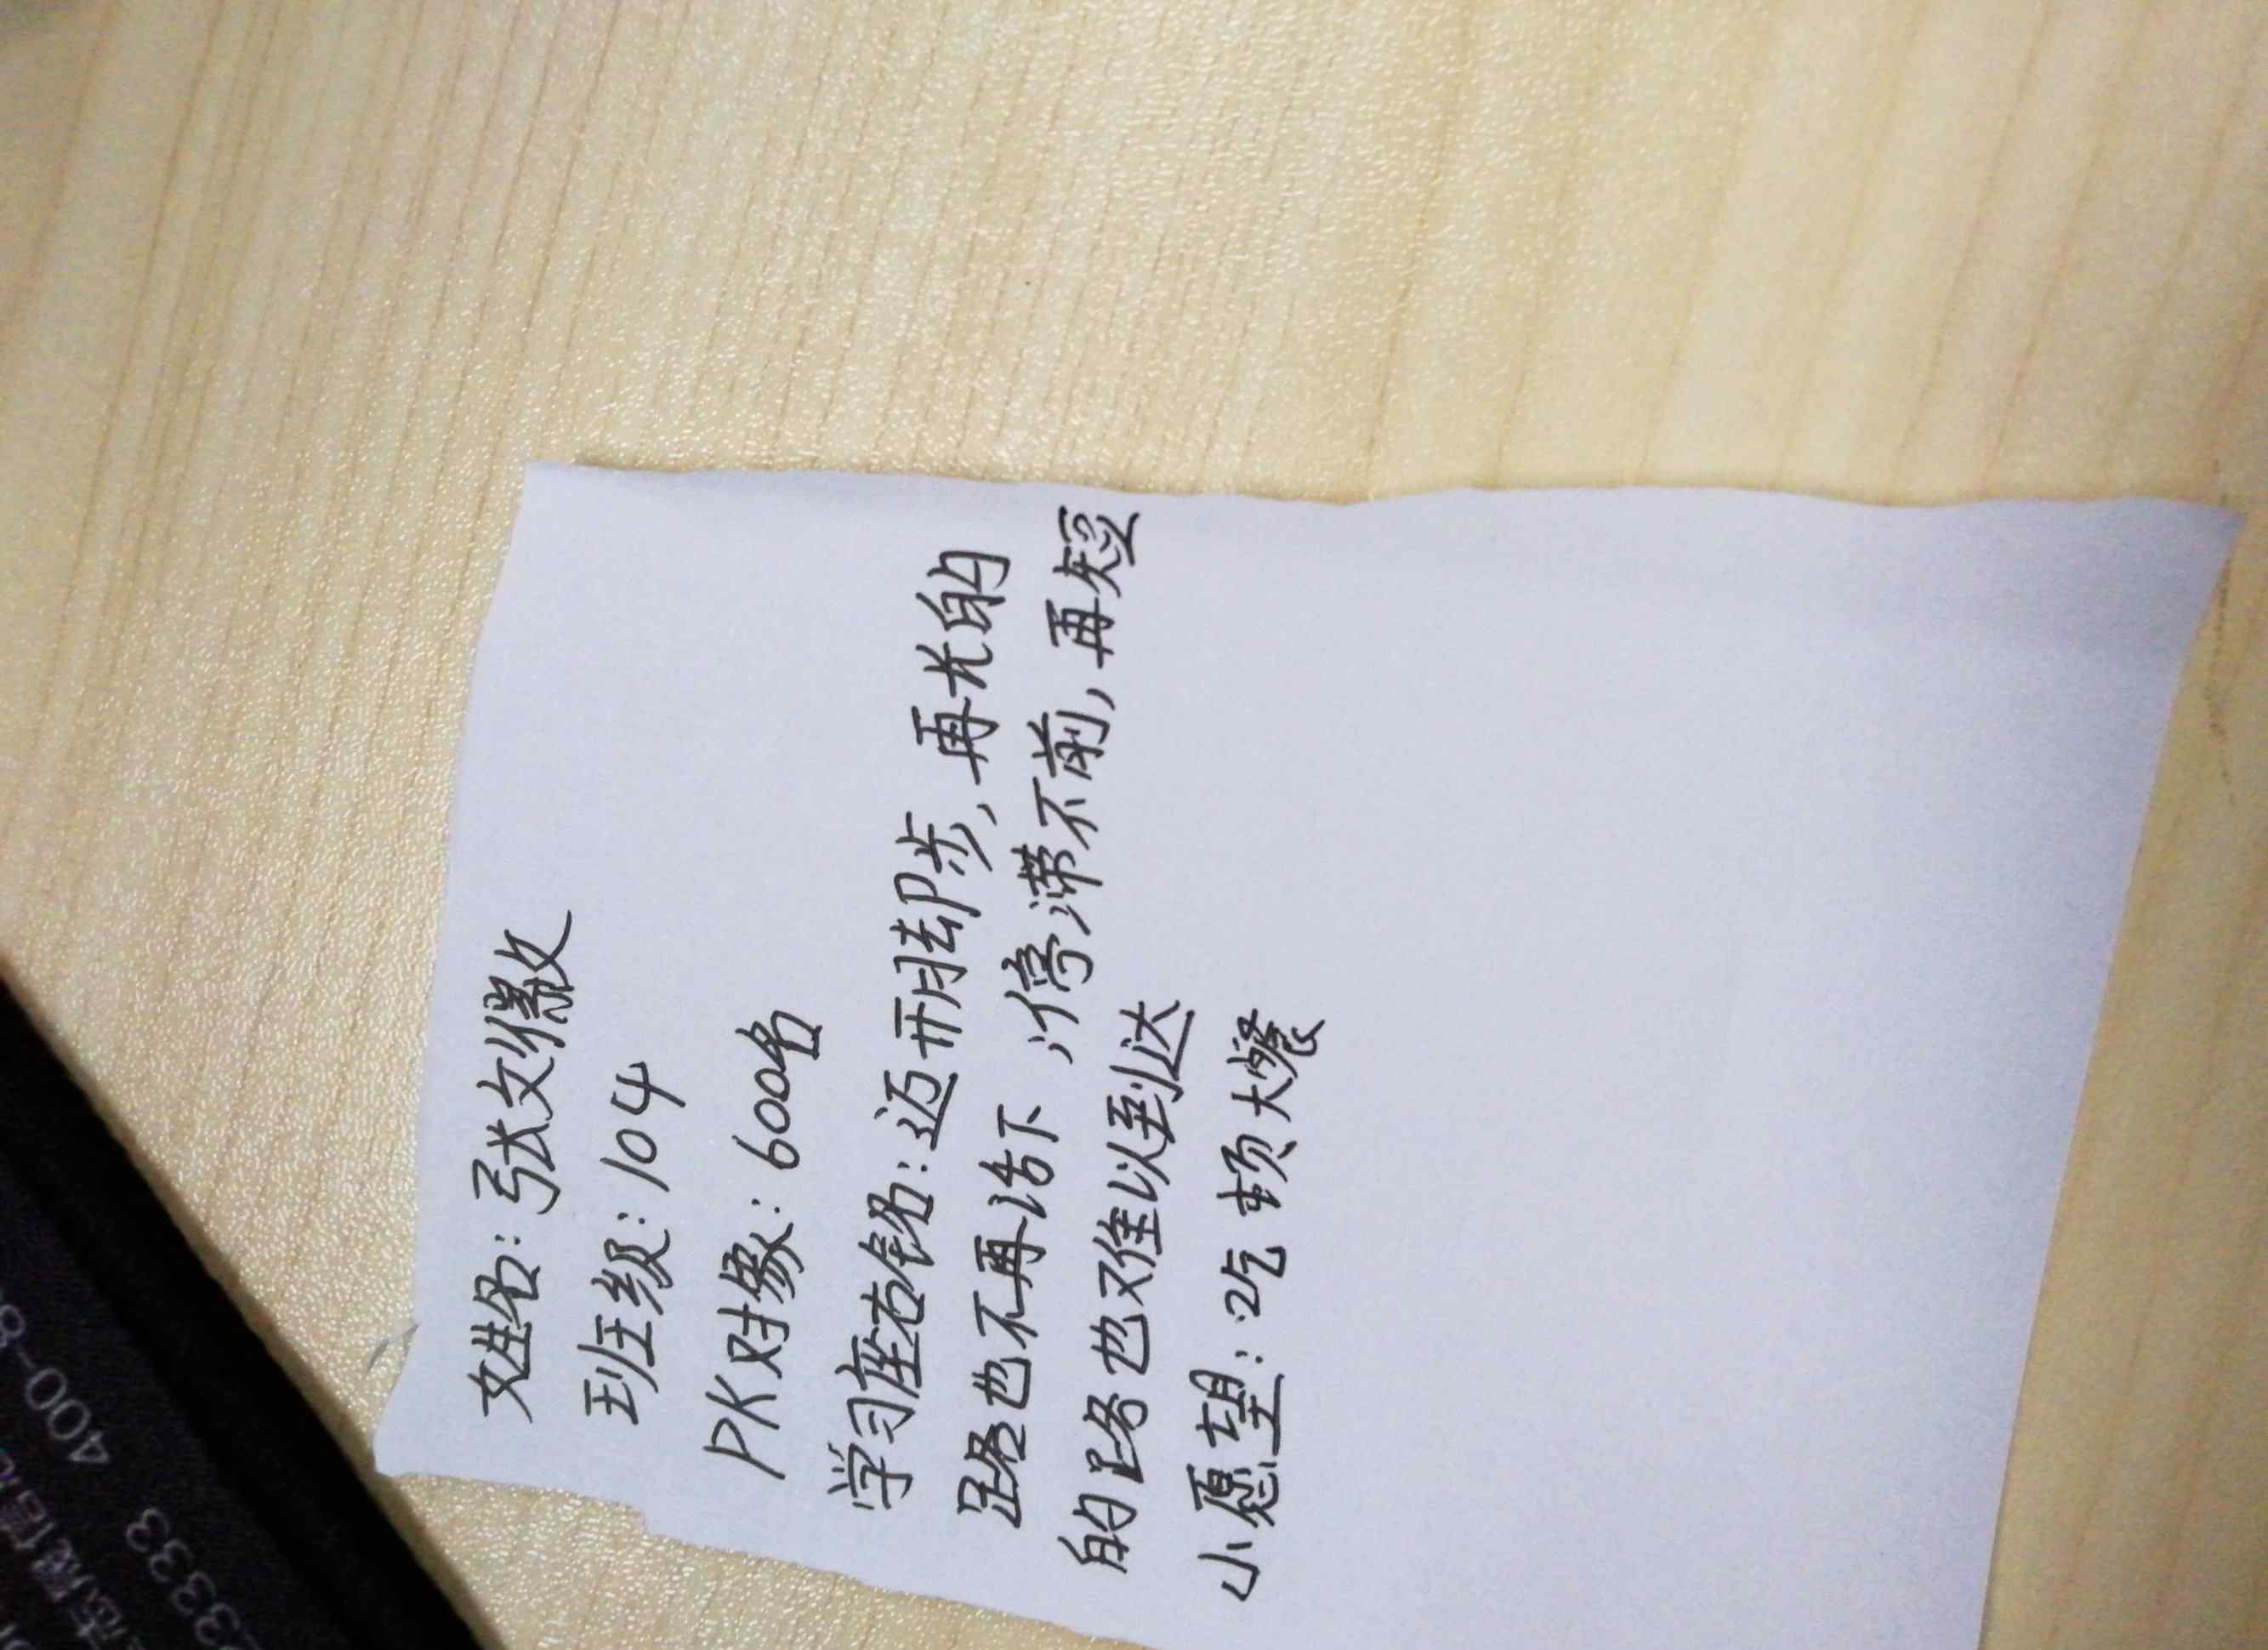 姓名:张文徽
班级:104
PK对象:600名
学习座右铭:迈开脚步,再长的
路也不再话下;停滞不前,再短
的路也难以到达
小愿望:吃顿大餐
400-8
3333